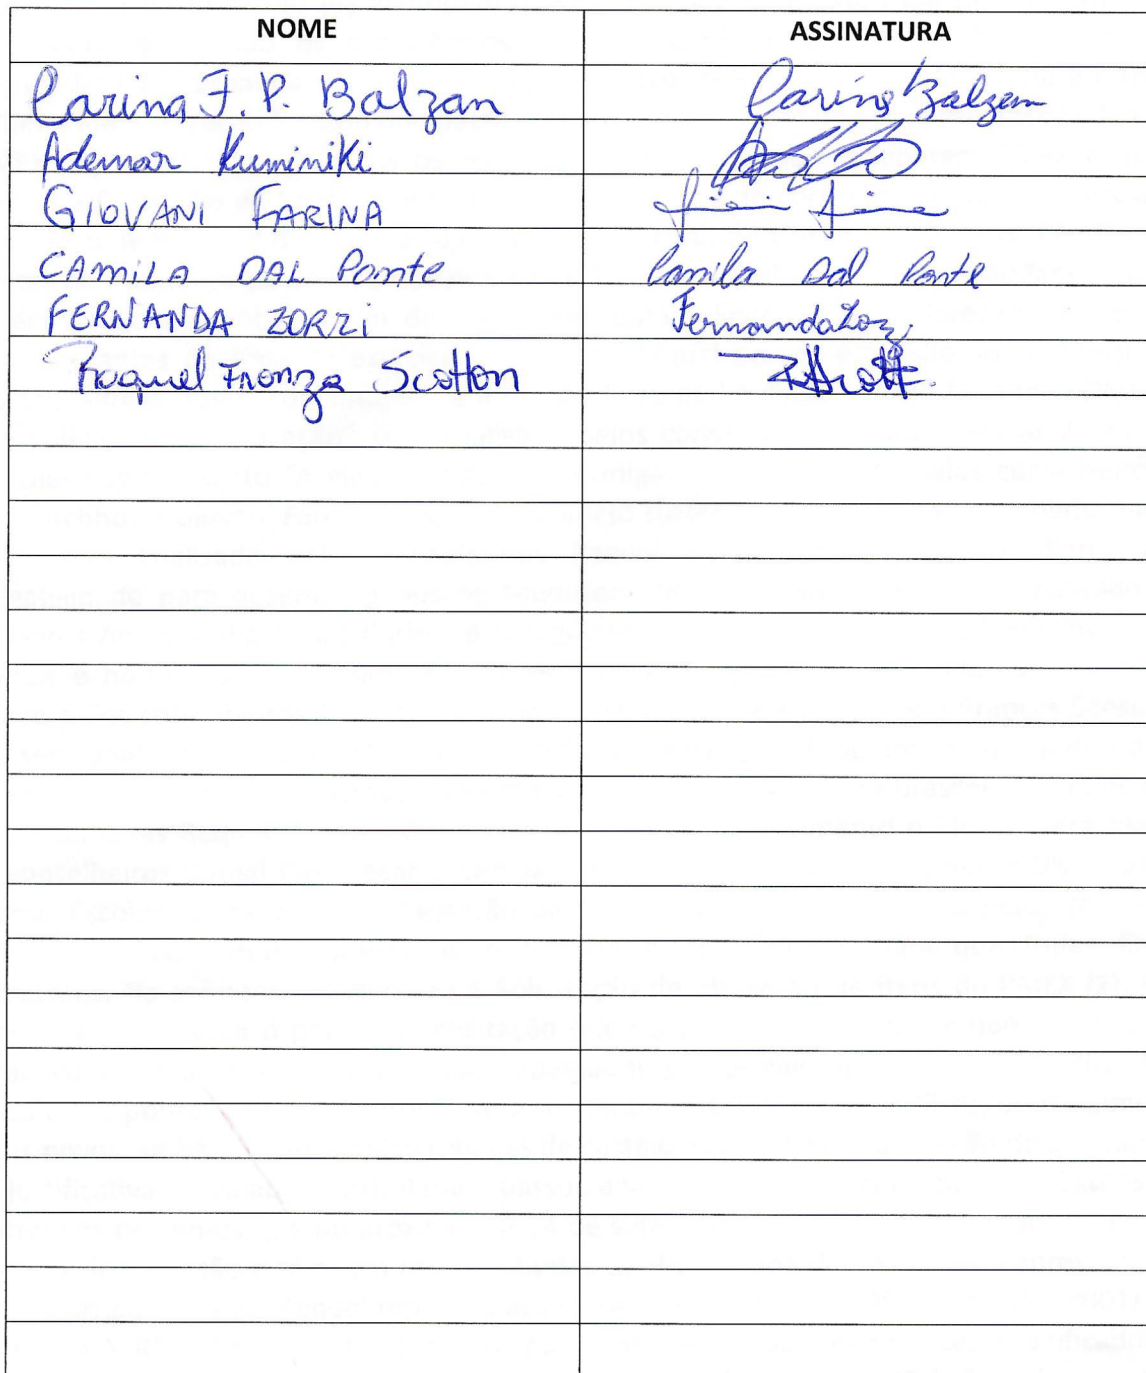 NOME ASSINATURA
Carina F. P. Balzan Carina Balzan
Ademar Kuminiki
GIOVANI FARINA
CAMILA DAL Ponte Camila Dal Ponte
FERNANDA ZORZI Fernanda Zorzi
Raquel Fronza Scotton